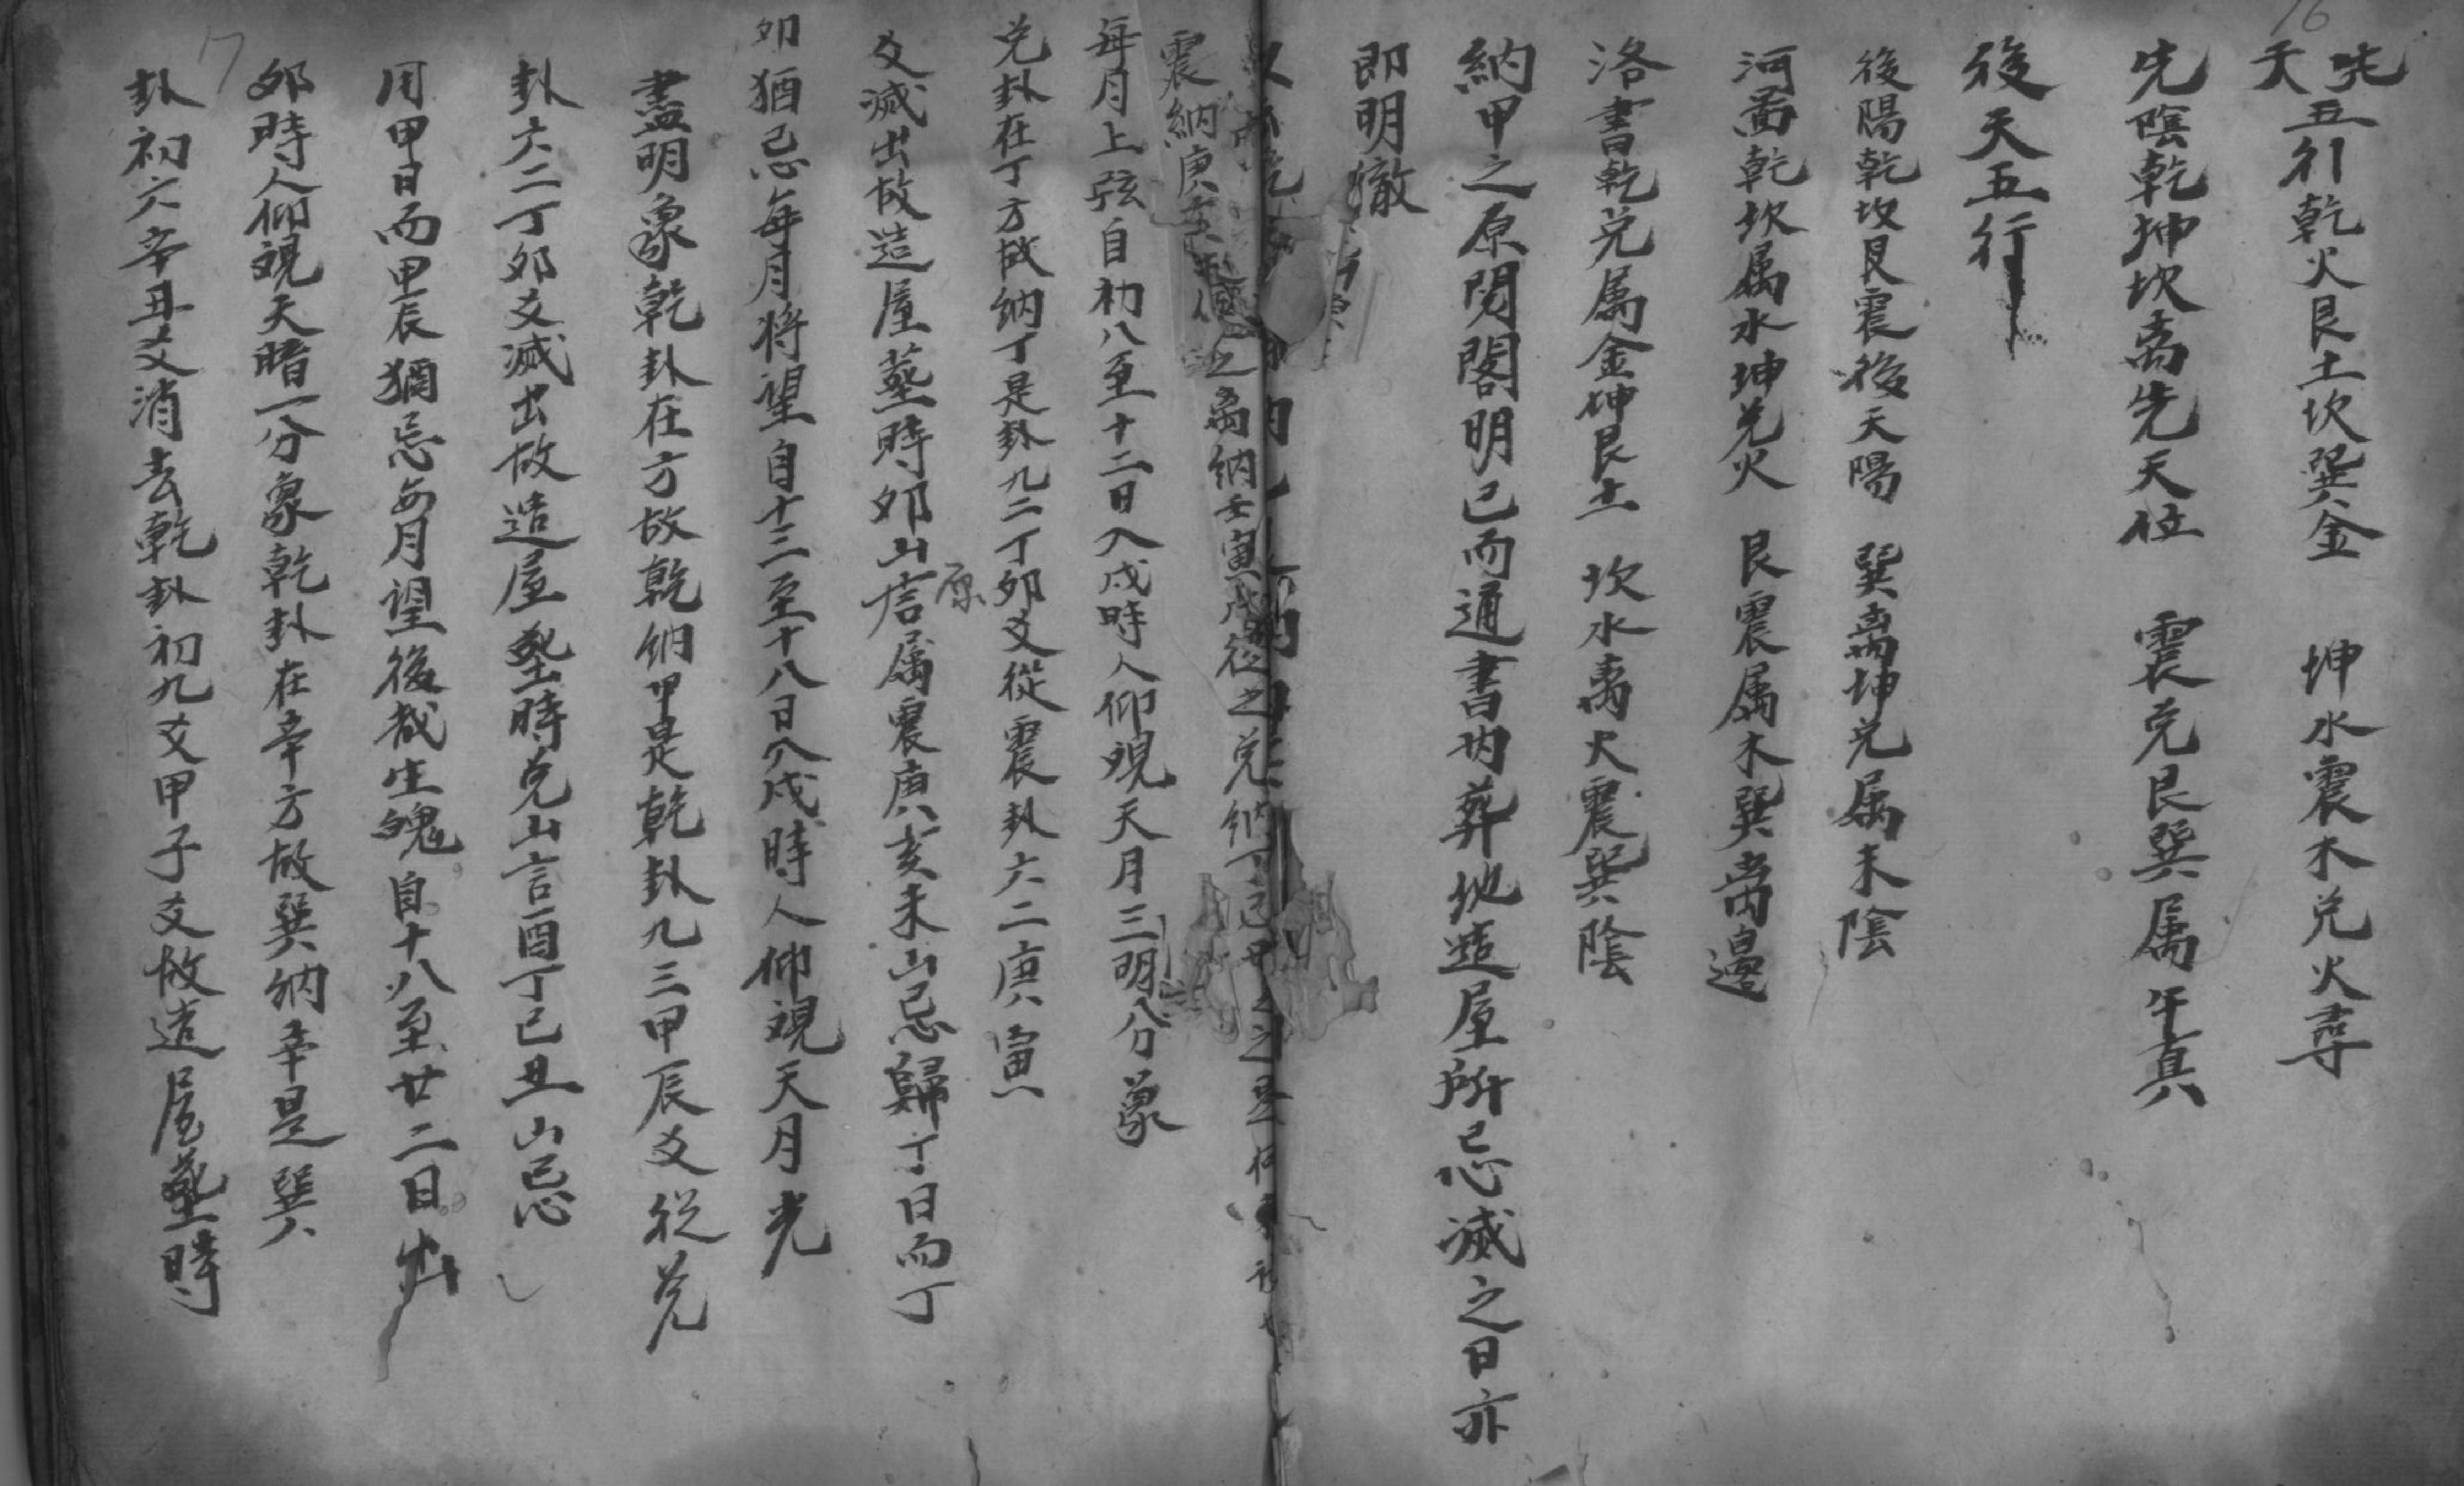 先天五行乾火艮土坎巽金 坤水震木兑火尋
先陰乾坤坎离先天位 震兑艮巽属午真
後天五行
後陽乾坎艮震後天陽 巽离坤兑属末陰
河啚乾坎属水坤兑火 艮震属木巽离邊
洛書乾兑属金坤艮土 坎水离火震巽陰
納甲之原閱閣明已而通書内葬地造屋所忌滅之日亦
即明徹
震納庚 之离納壬寅戌從之兑納丁巳
每月上弦自初八至十二日入戌時人仰覌天月三明八分象
兑卦在丁方故納丁是卦九二丁夘爻從震卦六二庚寅
爻滅出故造屋塟時夘山原言属震庚亥未山忌歸丁日而丁
夘猶忌每月将望自十三至十八日入戌時人仰覌天月光
盡明象乾卦在方故乾納甲是乾卦九三甲辰爻從兑
卦六二丁夘爻滅出故造屋塟時兑山言酉丁巳丑山忌
用甲日而甲辰猶忌每月望後哉生魄自十八至廿二日出
夘時人仰覌天暗一分象乾卦在辛方故巽納辛是巽
卦初六辛丑爻消去乾卦初九爻甲子爻故造屋塟時
17
16